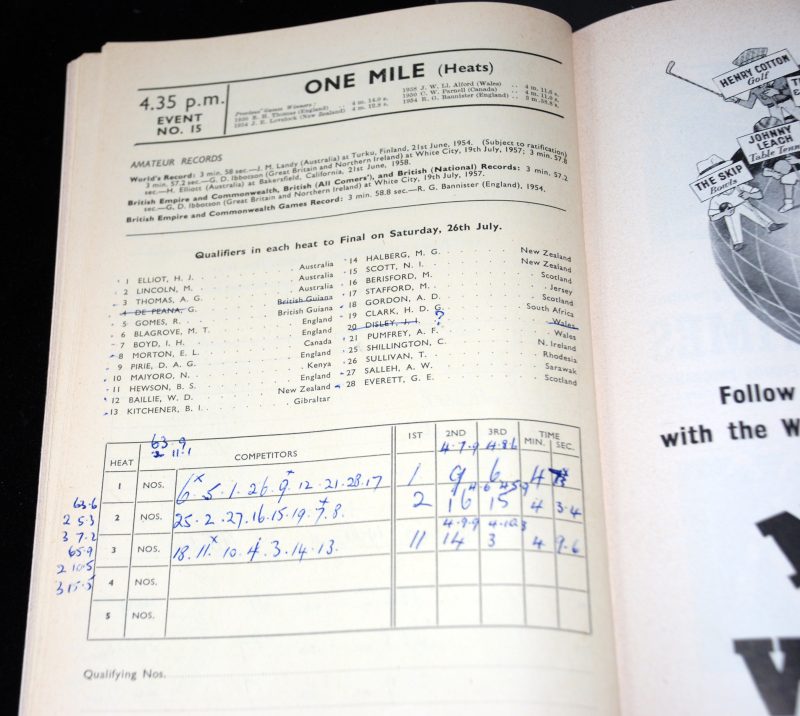 ONE MILE (Heats)
4.35 p.m.
EVENT
NO. 15
Previous Games Winners:
1930 R. H. Thomas (England) .. 4 m. 14.0 s.
1934 J. E. Lovelock (New Zealand) 4 m. 12.8 s.
1938 J. W. Ll. Alford (Wales) .. 4 m. 11.6 s.
1950 C. W. Parnell (Canada) .. 4 m. 11.0 s.
1954 R. G. Bannister (England) .. 3 m. 58.8 s.
AMATEUR RECORDS
World's Record: 3 min. 58 sec.—J. M. Landy (Australia) at Turku, Finland, 21st June, 1954. (Subject to ratification)
3 min. 57.2 sec.—G. D. Ibbotson (Great Britain and Northern Ireland) at White City, 19th July, 1957; 3 min. 57.8
sec.—H. Elliott (Australia) at Bakersfield, California, 21st June, 1958.
British Empire and Commonwealth, British (All Comers'), and British (National) Records: 3 min. 57.2
sec.—G. D. Ibbotson (Great Britain and Northern Ireland) at White City, 19th July, 1957.
British Empire and Commonwealth Games Record: 3 min. 58.8 sec.—R. G. Bannister (England), 1954.
Qualifiers in each heat to Final on Saturday, 26th July.
1 ELLIOT, H. J. Australia
2 LINCOLN, M. Australia
3 THOMAS, A. G. Australia
4 DE PEANA, G. British Guiana
5 GOMES, R. British Guiana
6 BLAGROVE, M. T. England
7 BOYD, I. H. England
8 MORTON, E. L. Canada
9 PIRIE, D. A. G. England
10 MAIYORO, N. Kenya
11 HEWSON, B. S. England
12 BAILLIE, W. D. New Zealand
13 KITCHENER, B. I. Gibraltar
14 HALBERG, M. G. New Zealand
15 SCOTT, N. I. New Zealand
16 BERISFORD, M. Scotland
17 STAFFORD, M. Jersey
18 GORDON, A. D. Scotland
19 CLARK, H. D. G. South Africa
20 DISLEY, J. I. ? Wales
21 PUMFREY, A. F. Wales
25 SHILLINGTON, C. N. Ireland
26 SULLIVAN, T. Rhodesia
27 SALLEH, A. W. Sarawak
28 EVERETT, G. E. Scotland
63.9
2 11.1
HEAT COMPETITORS 1ST 2ND 3RD TIME
MIN. SEC.
4.7.9 4.8.6
1 NOS. 6 . 5 . 1 . 26 . 9 . 12 . 21 . 28 . 17 1 9 6 4
4.6 4.5.9
2 NOS. 25 . 2 . 27 . 16 . 15 . 19 . 7 . 8 . 2 16 15 4 3.4
4.9.9 4.10.3
3 NOS. 18 . 11 . 10 . 4 . 3 . 14 . 13 . 11 14 3 4 9.6
4 NOS.
5 NOS.
63.6
2 5.3
3 7.2
65.9
2 10.5
3 15.5
Qualifying Nos.
HENRY COTTON
Golf
JOHNNY
LEACH
Table Tenn
THE SKIP
Bowls
Follow
with the W